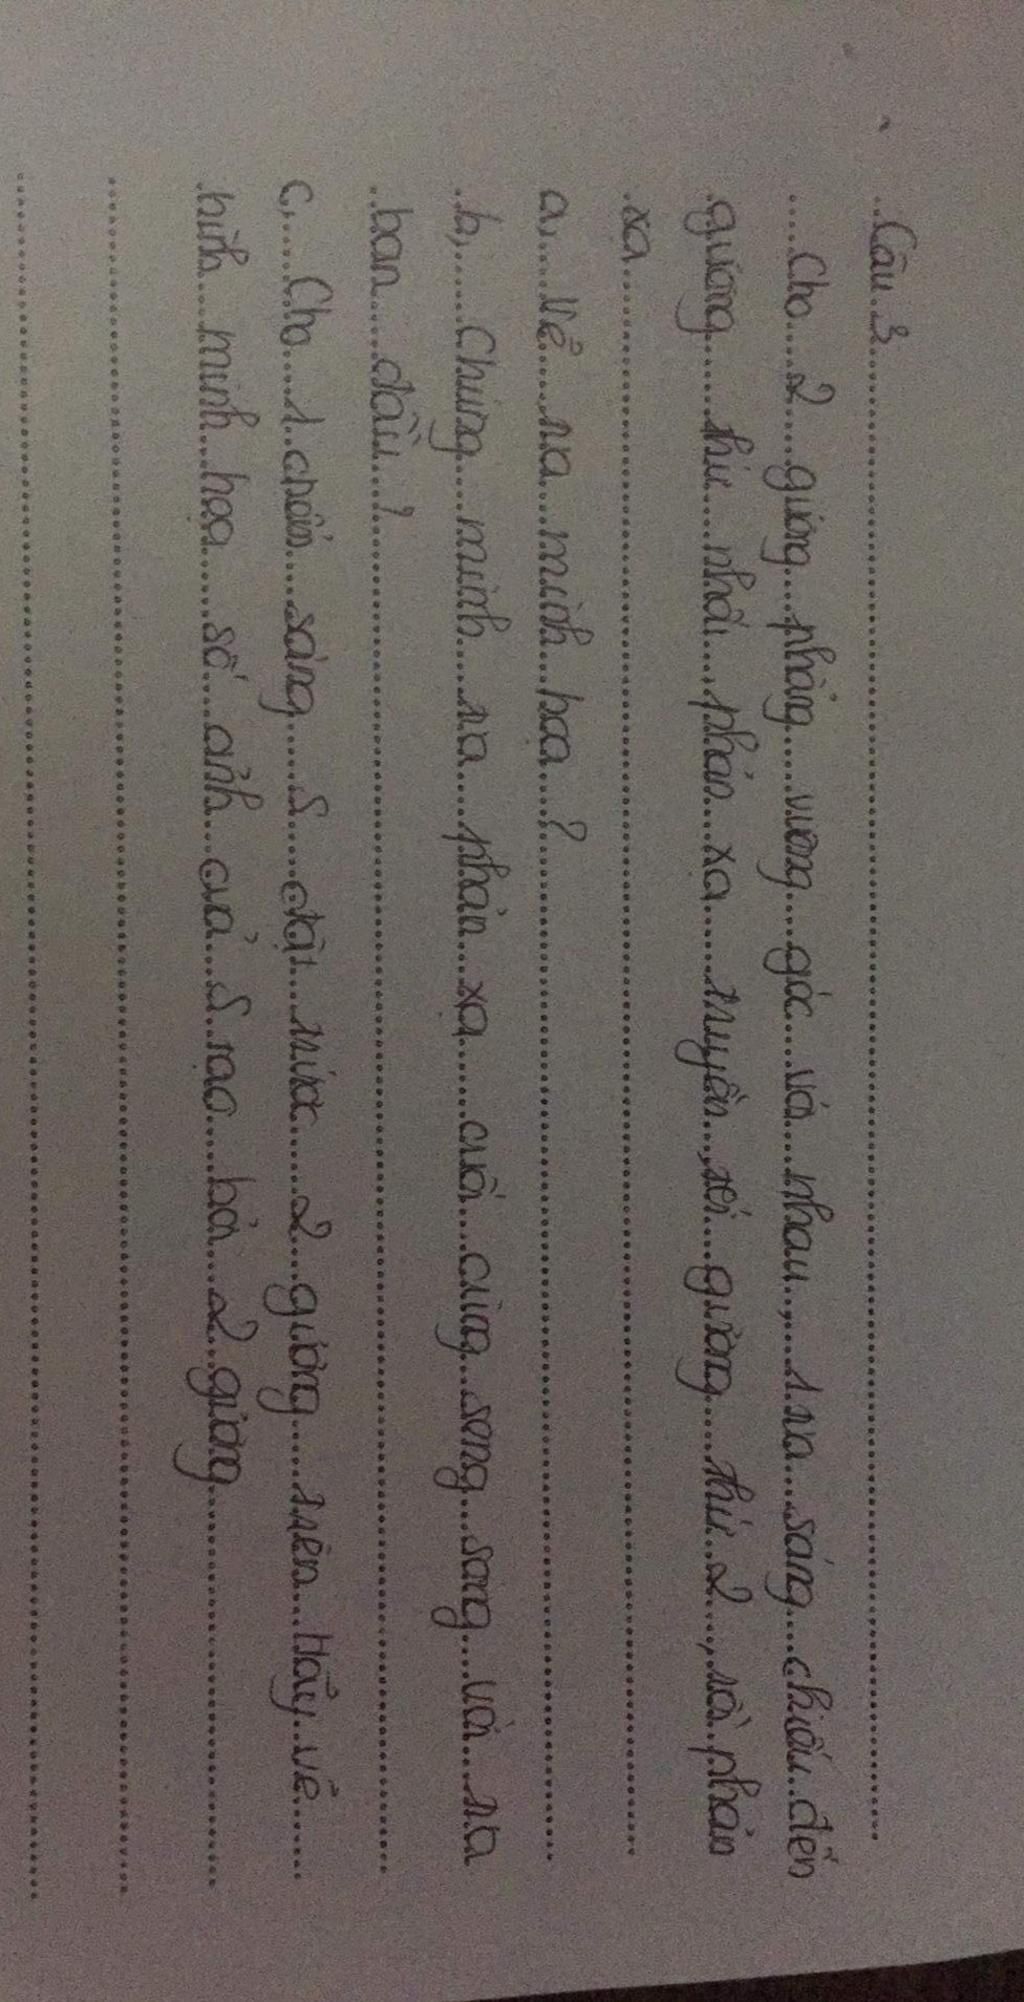 Câu 3
Cho 2 gương phẳng vuông góc với nhau, 1 tia sáng chiếu đến
gương thứ nhất phản xạ truyền tới gương thứ 2, rồi phản
xạ
a, Vẽ tia minh họa?
b, Chứng minh tia phản xạ cuối cùng song song với tia
ban đầu?
c, Cho 1 điểm sáng S đặt trước 2 gương trên Hãy vẽ
hình minh họa số ảnh của S tạo bởi 2 gương